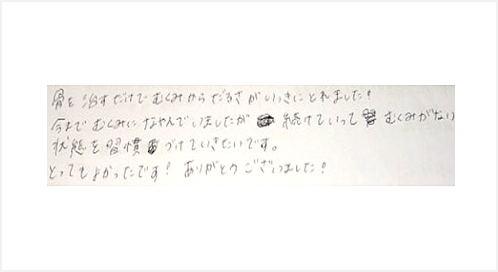 骨を治すだけでむくみからだるさがいっきにとれました!
今までむくみになやんでいましたが 続けていって むくみがない
状態を習慣づけていきたいです。
とってもよかったです! ありがとうございました!